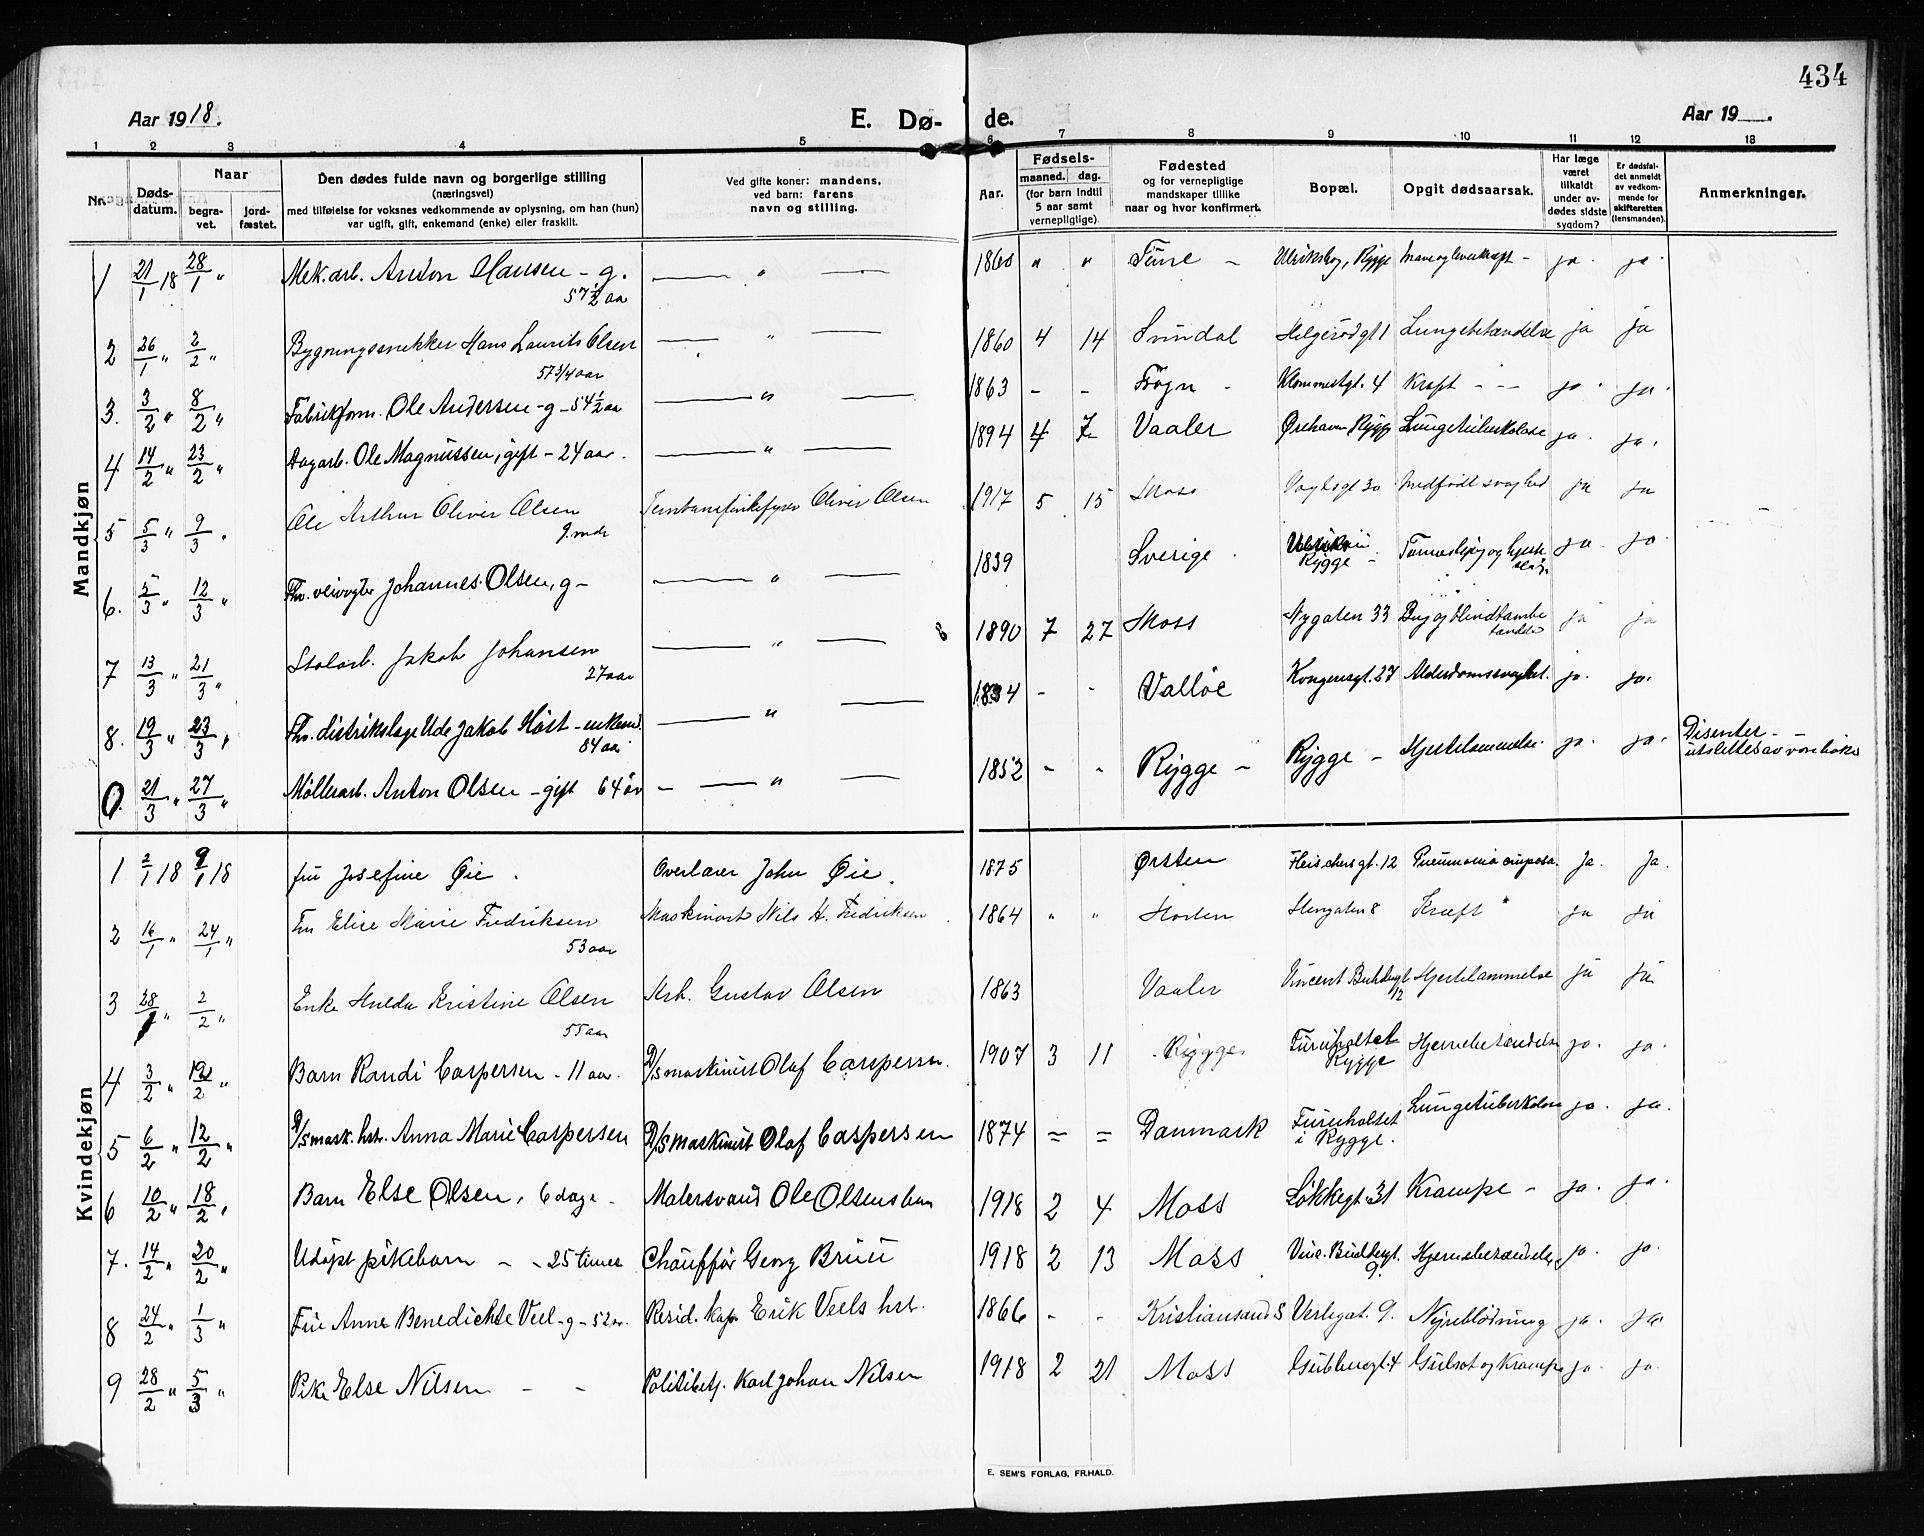 434
Aar 1918. E. Dø- de. Aar 19
1 2 3 4 5 6 7 8 9 10 11 12 13
Nr. Døds-datum. Naar begra-vet. jord-fæstet. Den dødes fulde navn og borgerlige stilling (næringsvei) med tilføielse for voksnes vedkommende av oplysning, om han (hun) var ugift, gift, enkemand (enke) eller fraskilt. Ved gifte koner: mandens, ved barn: farens navn og stilling. Aar. Fødsels- maaned. dag. (for barn indtil 5 aar samt vernepligtige) Fødested og for vernepligtige mandskaper tillike naar og hvor konfirmert. Bopæl. Opgit dødsaarsak. Har læge været tilkaldt under av-dødes sidste sygdom? Er dødsfal-det anmeldt av vedkom-mende for skifteretten (lensmanden). Anmerkninger.
Mandkjøn
1 21/1 18 28/1 " Mek. arb. Anton Hansen - g. 57 1/2 aar — " — 1860 " " Tune - Rygge ja. ja.
2 26/1 " 2/2 " Bygningssnekker Hans Laurits Olsen 57 3/4 aar — " — 1860 4 14 Sundal Helgerødgt 1 Lungebetændelse ja ja
3. 3/2 " 8/2 " Fabrikform. Ole Andersen - g - 54 1/2 aar — " — 1863 - - Frogn - gt. 4 Kræft - - ja. ja.
4 14/2 " 23/2 " Dagarb. Ole Magnussen, gift - 24 aar. — " — 1894 4 7 Vaaler Ørehavn Rygge Lungetuberkulose ja. ja.
5 5/3 " 9/3 " Ole Arthur Oliver Olsen 9 mdr Oliver Olsen 1917 5 15 Moss Vogtsgt 30 medfødt svaghed ja ja
6. 5/3 " 12/3 " Fhv. veivogter Johannes Olsen, g - — " — 1839 Sverige. Rygge - ja. ja.
7 13/3 " 21/3 " Stolarb. Jakob Johansen 27 aar — " — 1890 7 27 Moss Nygaten 33 Bug og blindtambetændelse ja ja
8. 19/3 " 23/3 " Fhv. distriktslæge Ude Jakob Høst - enkem. 84 aar — " — 1834 - - Valløe Kongensgt. 27 Alderdomssvaghet. ja. ja.
0. 21/3 " 27/3 " Møllerarb. Anton Olsen - gift 64 år — " — 1852 - - Rygge - Rygge - Hjertelammelse. ja. ja. Disenter - utslettes av vore bøker
Kvindekjøn
1 2/1 18 9/1 18 fru Josefine Øie. Overlærer John Øie. 1875 Ørsten Fleischersgt. 12 Pneumonia Ja. Ja.
2 16/1 " 24/1 " Fru Elise Marie Fredriksen 53 aar Maskinist Nils H. Fredriksen 1864 " " Horten Storgaten 8 Kræft " ja ja
3 28/1 " 2/2 " Enke Hulda Kristine Olsen 55 aar Gustav Olsen 1863 Vaaler Vincent Buddesgt 12 Hjertelammelse ja ja
4 3/2 " 12/2 " Barn Randi Caspersen - 11 aar. D/S maskinist Olaf Caspersen. 1907 3 11 Rygge. Furuholtet Rygge Hjernebetændelse ja. ja.
5 6/2 " 12/2 " D/S mask. hstr. Anna Marie Caspersen D/S maskinist Olaf Caspersen 1874 = = Danmark Furuholtet i Rygge. Lungetuberkulose ja. ja.
6 10/2 " 18/2 " Barn Else Olsen, 6 dage. Malersvend Ole Olsens barn 1918 2 4 Moss Løkkegt. 31 Krampe - ja. ja.
7. 14/2 " 20/2 " Udøpt pikebarn - - 25 timer Chauffør Georg Bruu 1918 2 13 Moss Vinc. Buddesgt. 9. Hjernebetændelse ja. ja.
8 24/2 " 1/3 " Fru Anne Benedichte Veel - g - 52 aar. Resid. kap. Erik Veels hstr. 1866 - - Kristiansand S Verlegat. 9. Nyreblødning ja. ja.
9 28/2 " 5/3 " Pike Else Nilsen - - Politibetj. Karl Johan Nilsen 1918 2 21 Moss Gubbensgt. 4 Gulsot og Krampe ja. ja.
E. SEM'S FORLAG, FR.HALD.